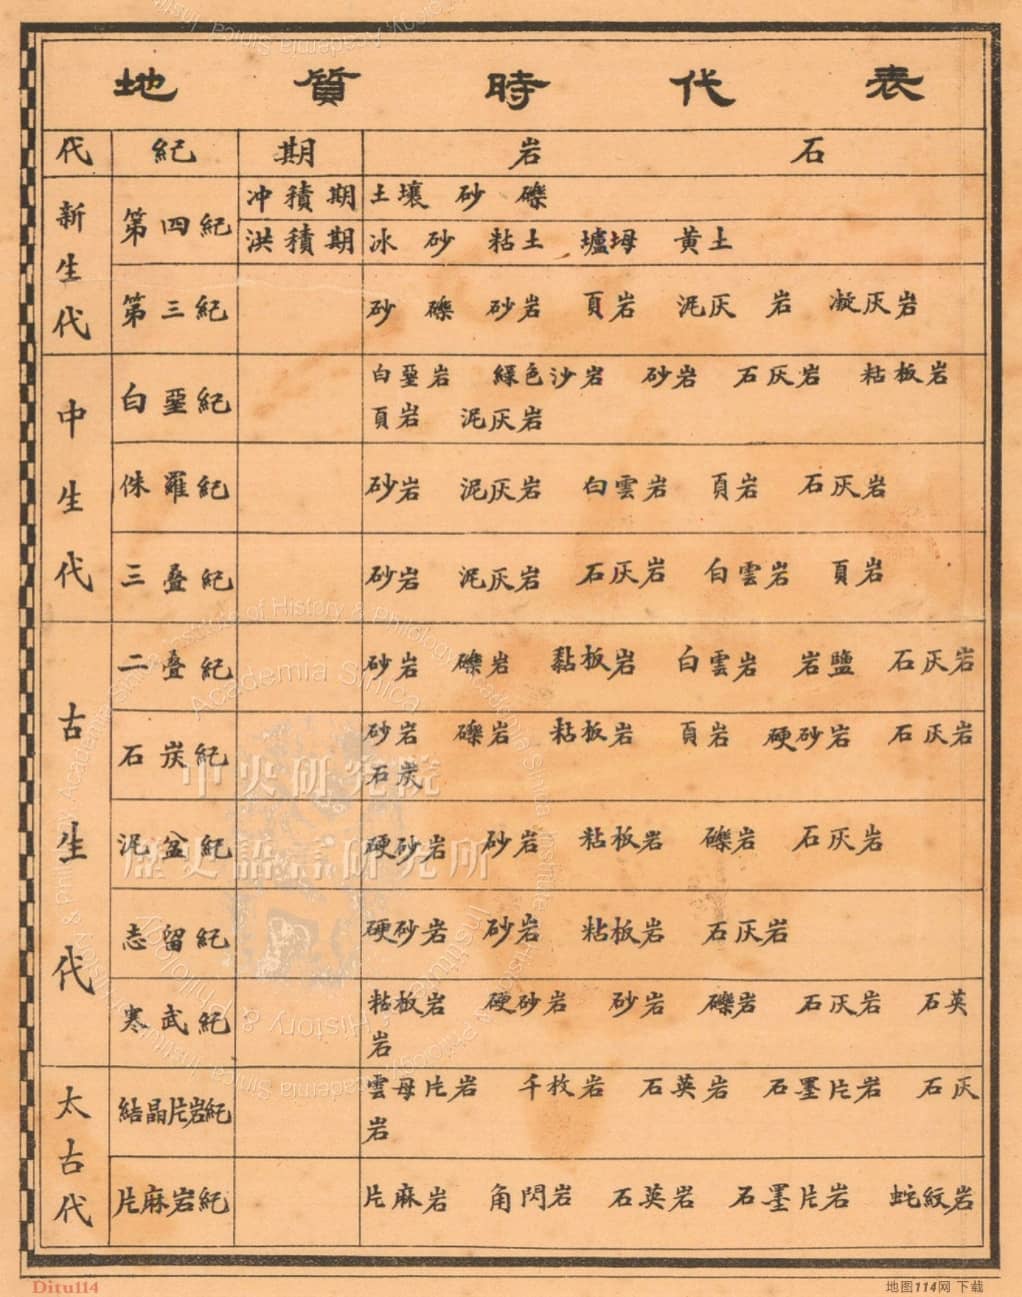 地質時代表
代 紀 期 岩石
新生代
第四紀
冲積期 土壤 砂 礫
洪積期 冰 砂 粘土 壚坶 黄土
第三紀 砂 礫 砂岩 頁岩 泥灰岩 凝灰岩
中生代
白堊紀 白堊岩 綠色沙岩 砂岩 石灰岩 粘板岩
頁岩 泥灰岩
侏羅紀 砂岩 泥灰岩 白雲岩 頁岩 石灰岩
三疊紀 砂岩 泥灰岩 石灰岩 白雲岩 頁岩
古生代
二疊紀 砂岩 礫岩 黏板岩 白雲岩 岩鹽 石灰岩
石炭紀 砂岩 礫岩 粘板岩 頁岩 硬砂岩 石灰岩
石炭
泥盆紀 硬砂岩 砂岩 粘板岩 礫岩 石灰岩
志留紀 硬砂岩 砂岩 粘板岩 石灰岩
寒武紀 粘板岩 硬砂岩 砂岩 礫岩 石灰岩 石英
岩
太古代
結晶片岩紀 雲母片岩 千枚岩 石英岩 石墨片岩 石灰
岩
片麻岩紀 片麻岩 角閃岩 石英岩 石墨片岩 蛇紋岩
中央研究院
歷史語言研究所
Institute of History & Philology, Academia Sinica
Ditu114
地图114网 下载